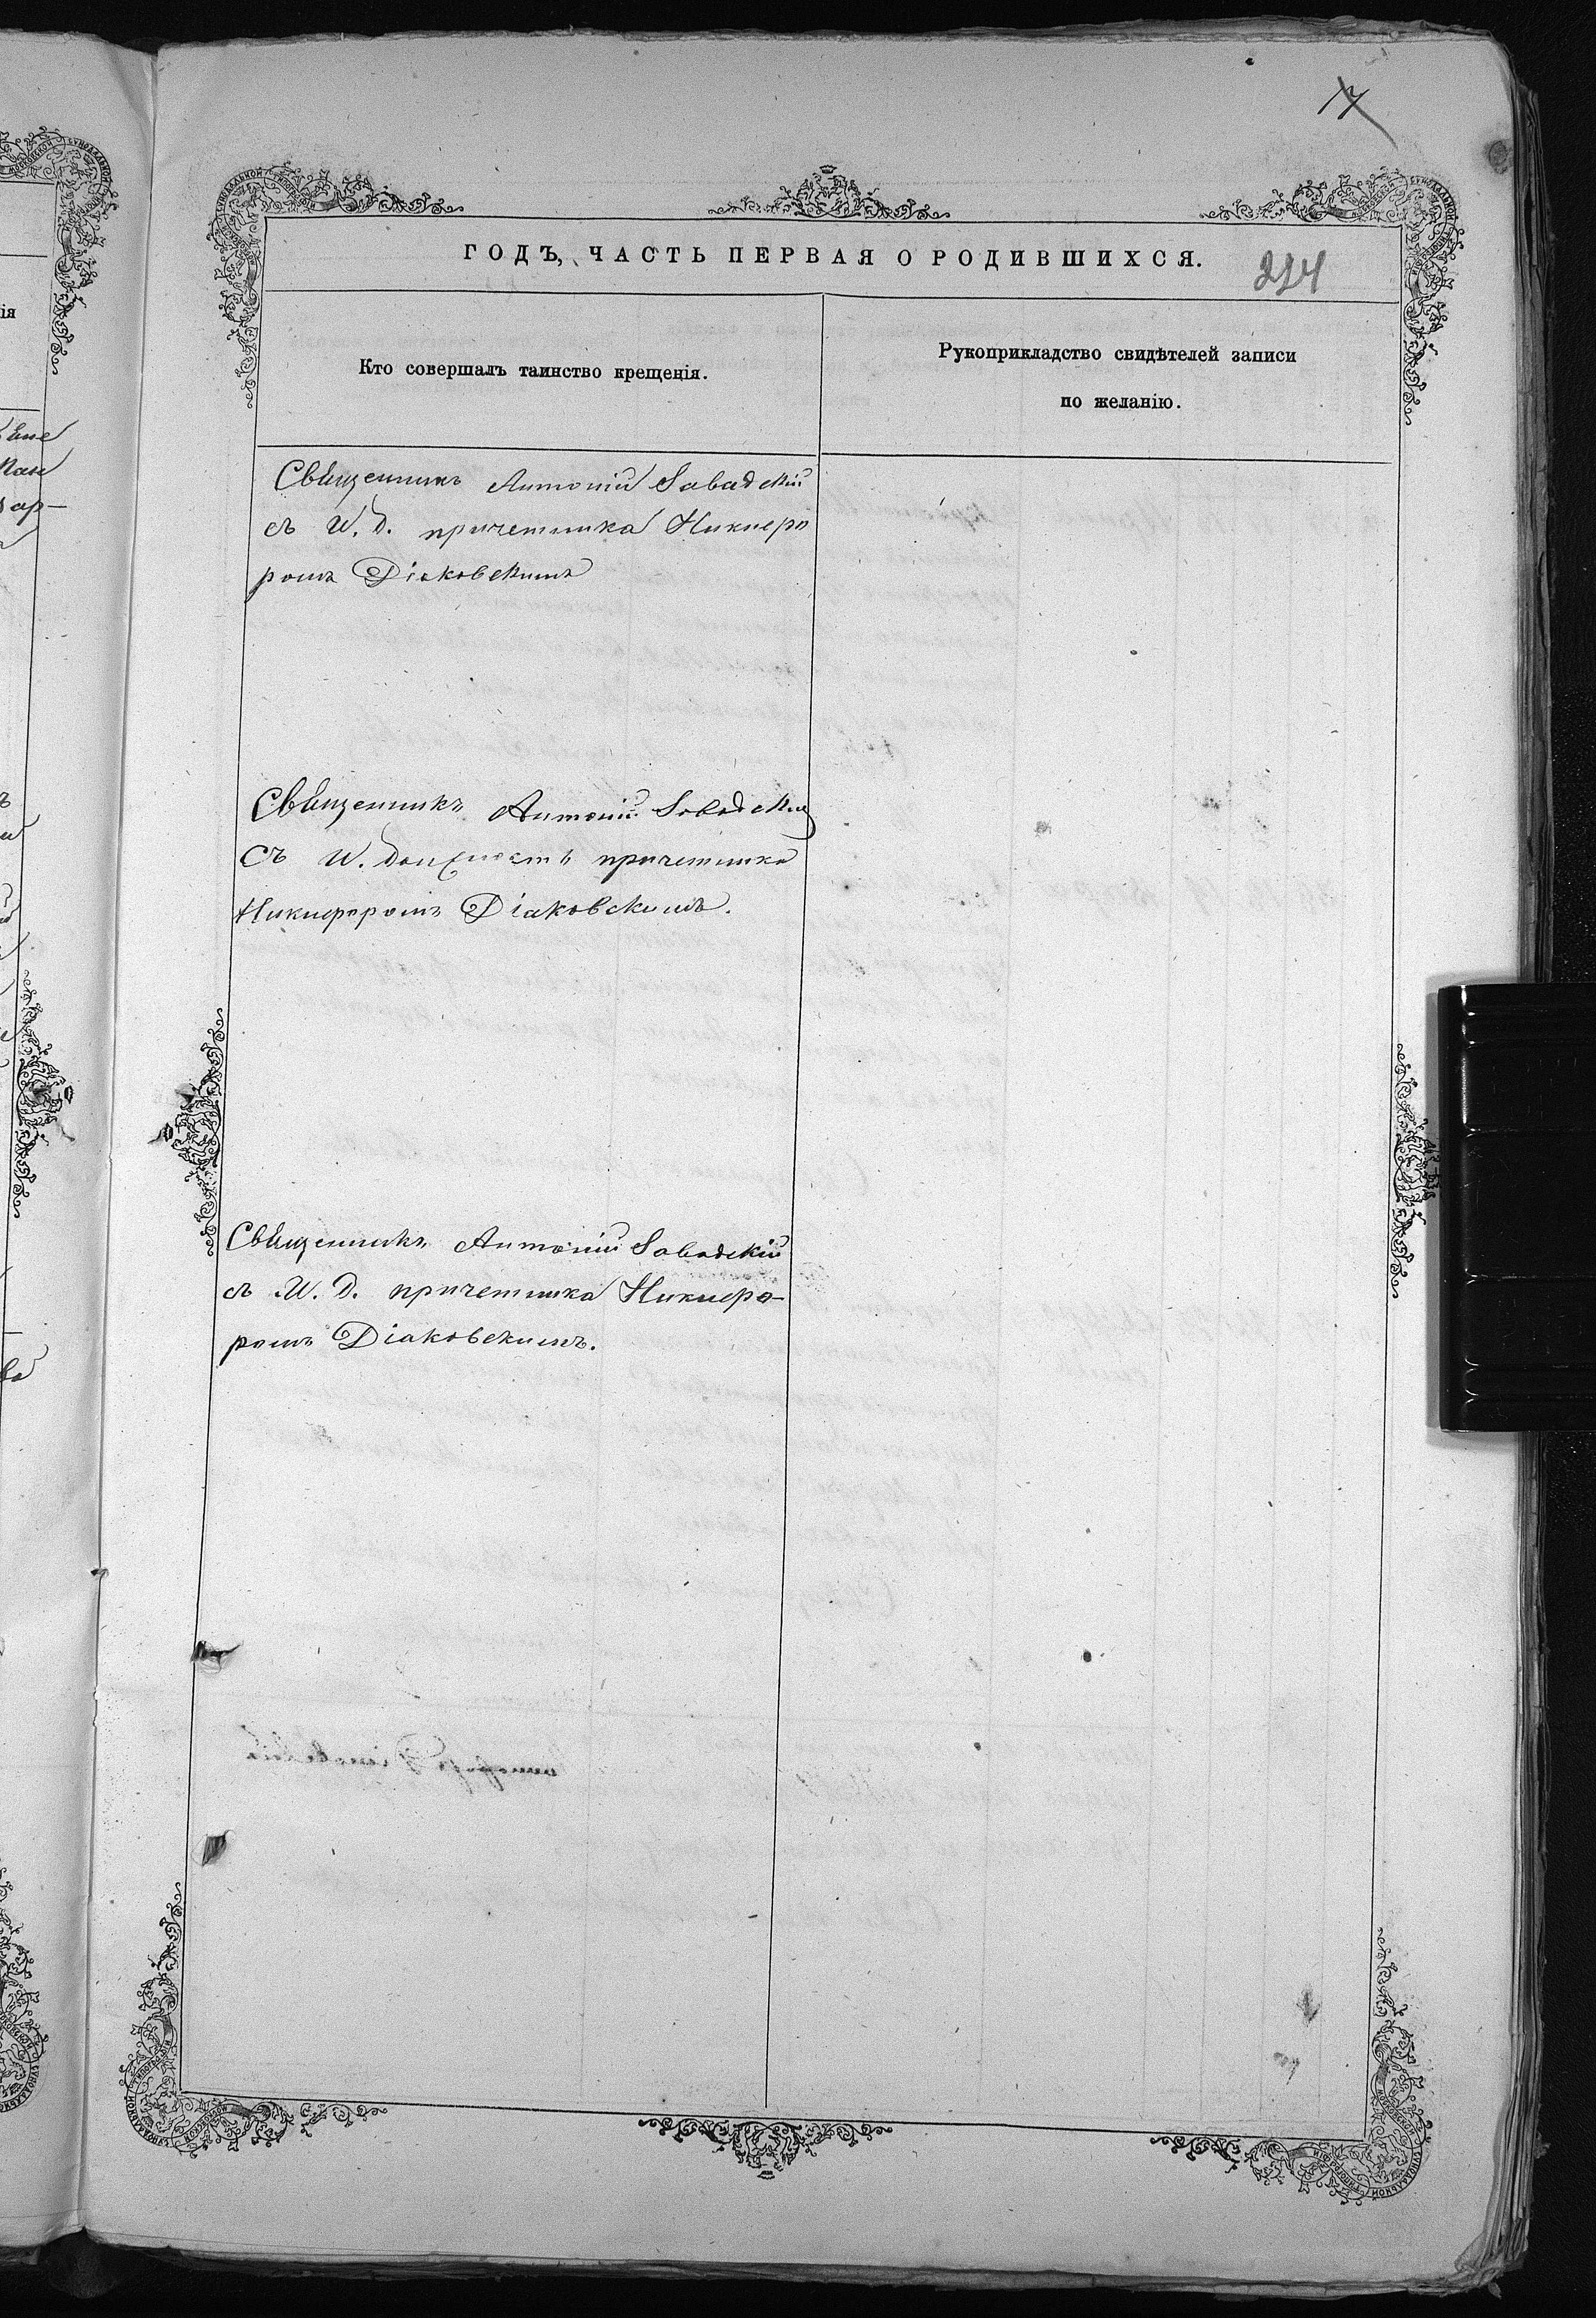 17
ГОДЪ, ЧАСТЬ ПЕРВАЯ О РОДИВШИХСЯ.
224
Кто совершалъ таинство крещенія.
Рукоприкладство свидѣтелей записи
по желанію.
Священникъ Антоній Завадскій
съ И. д. причетника Никифо
ромъ Діаковскимъ
Священникъ Антоній Завадскій
Съ И. должность причетника
Никифоромъ Діаковскимъ.
Священникъ Антоній Завадскій
съ И. Д. причетника Никифо-
ромъ Діаковскимъ.